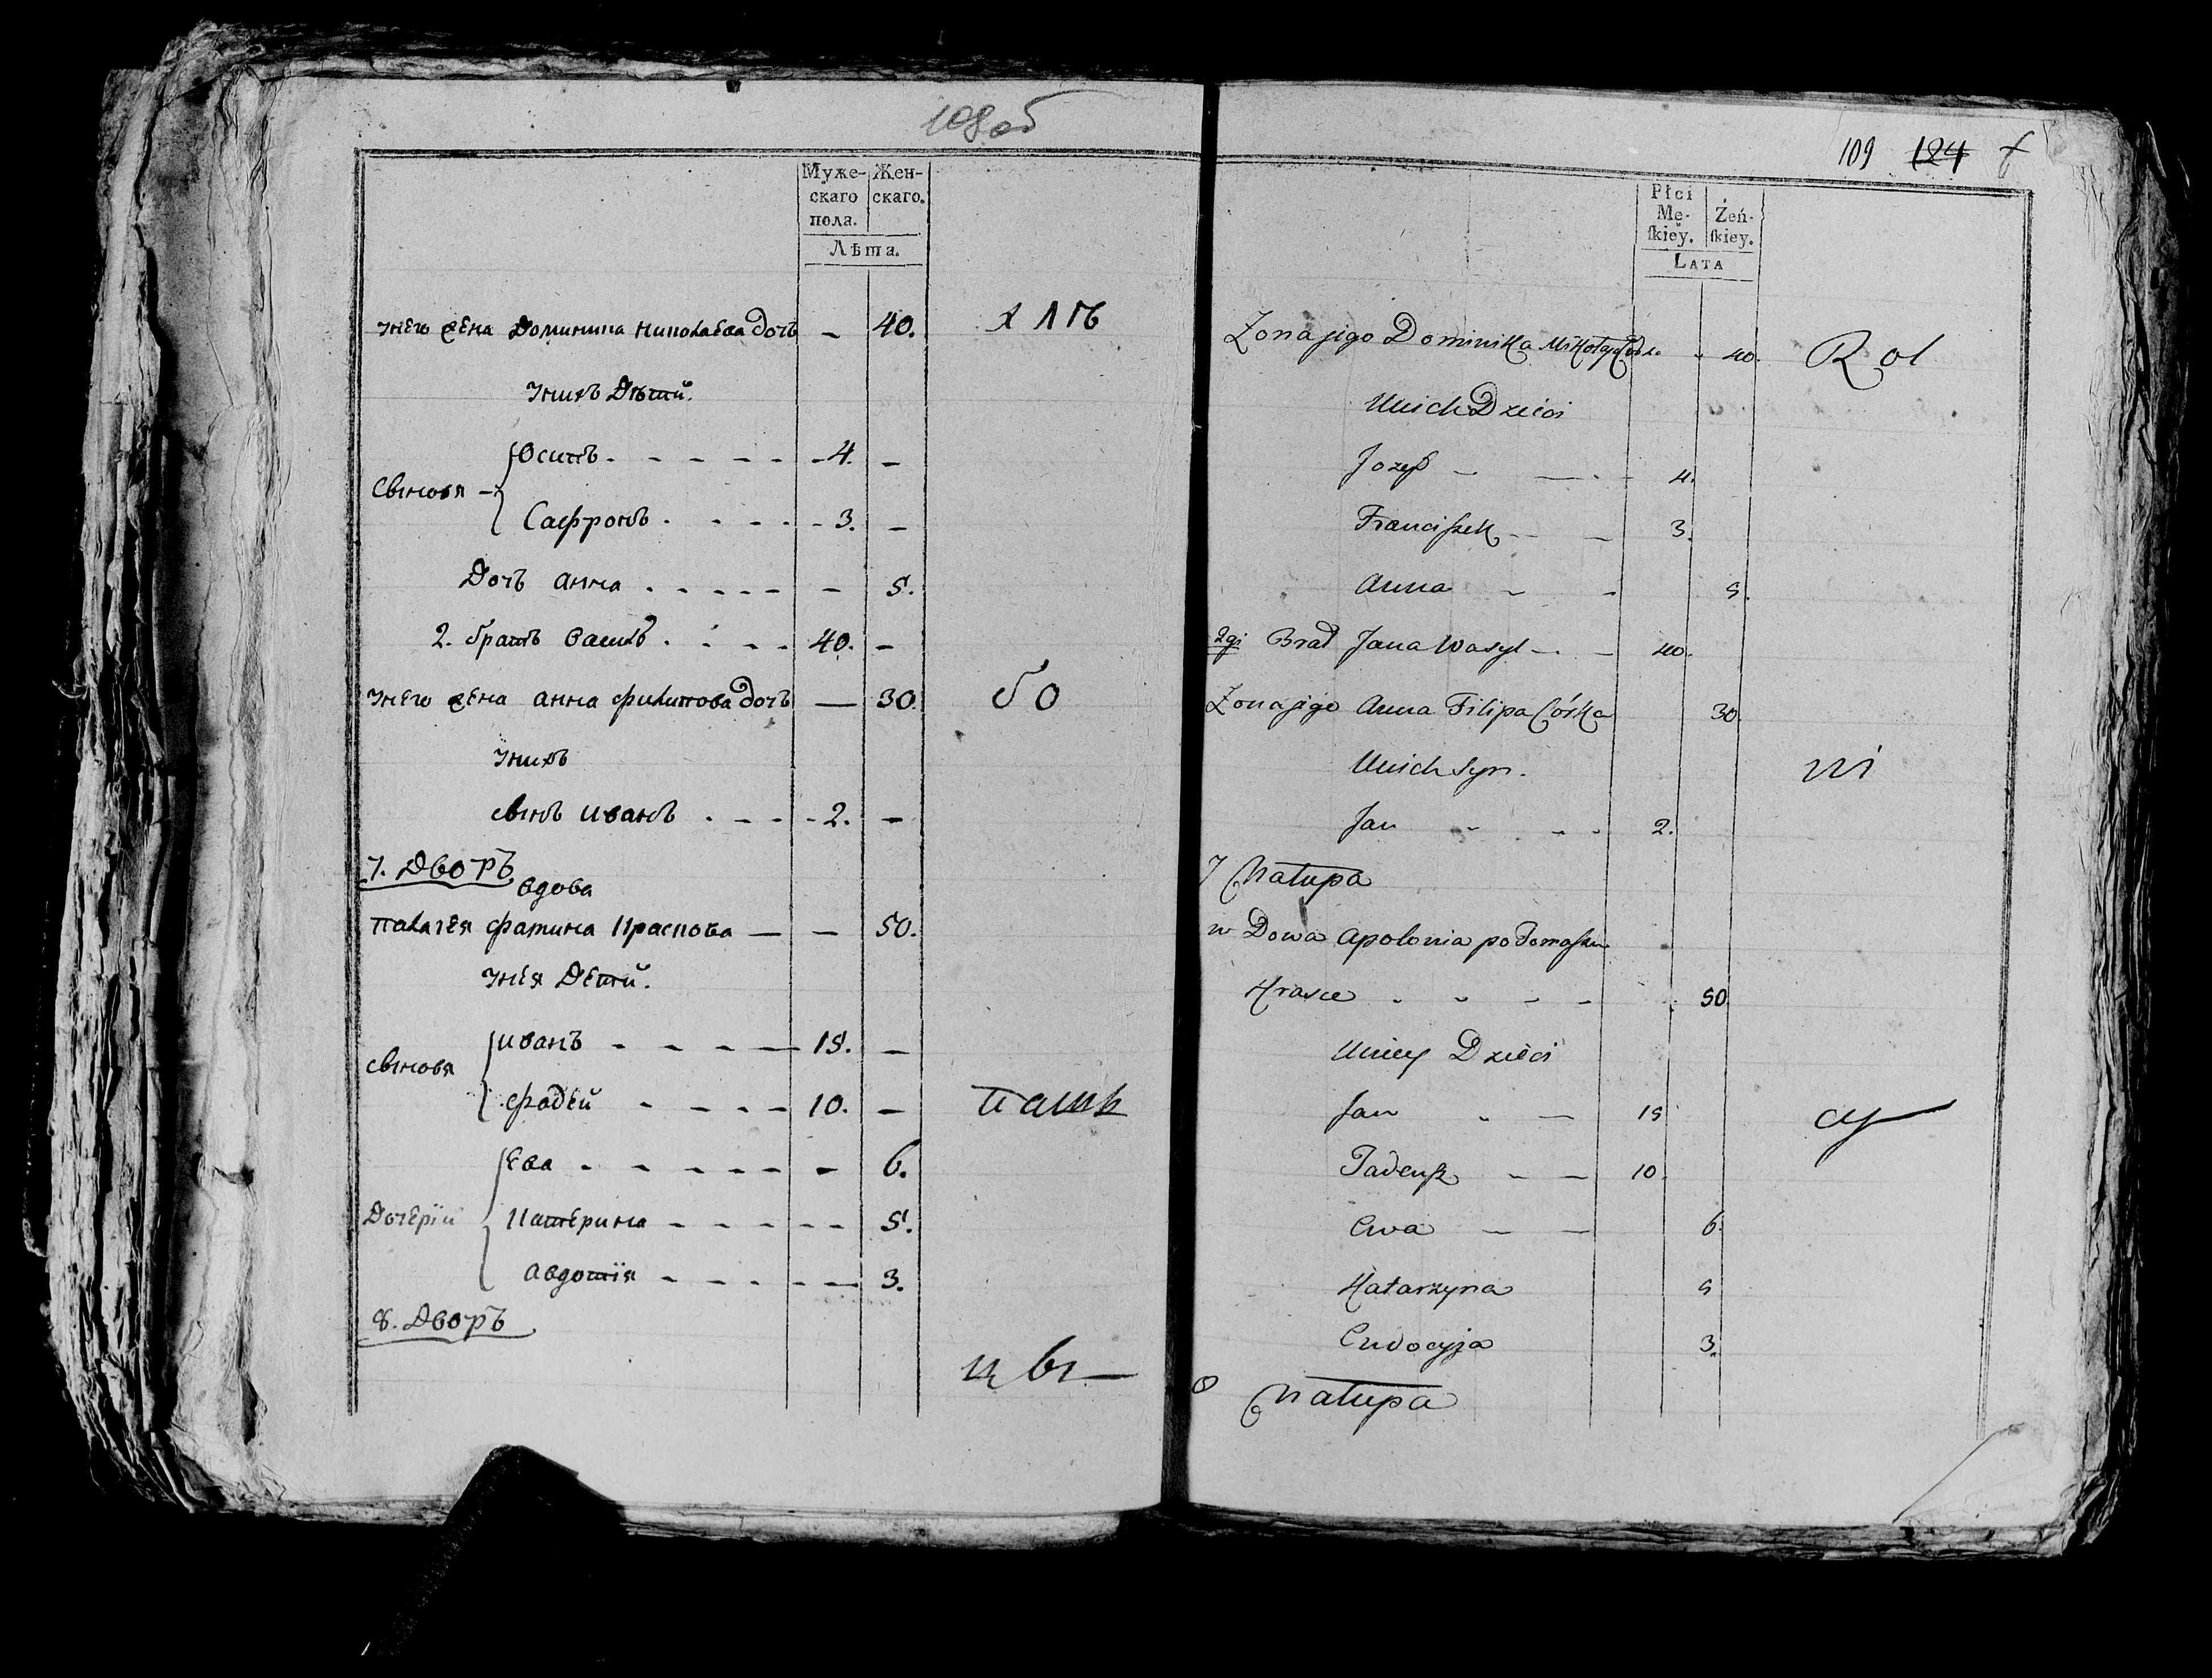 108об
Муже-
скаго
пола.
Жен-
скаго.
Лѣта.
унего жена Доминика николаева дочь — 40. хлѣ
уних Дѣтй.
Осипъ - 4. —
Сынов'я
Сафронъ - 3. —
Дочь анна — 5.
2. братъ василь 40. —
унего жена анна филипова дочь — 30. бо
унихъ
сынъ иванъ - 2. —
7. Дворъ
вдова
палагея фамина Краскова — — 50.
унея Дети.
иванъ 15. —
сынов'я
фадей 10. — паш
Ева — 6.
Дочерїи
Катерина — 5.
авдотїя — 3.
8. Дворъ
цы
109 124
Płci
Mę-
ſkiey.
Żeń-
ſkiey.
Lata
Zona jigo Dominika Mikołaja - 40. Rol
Unich Dzieci
Jozef 4.
Franciſzek 3.
Anna 5.
2gi Brat Jana Wasyl 40.
Zona jego Anna Filipa Córka 30.
Unich Syn. ni
Jan 2.
7 Chałupa
w Dowa Apolonia po Tomaſzu
Krasce 50.
Uniey Dzieci
Jan 15 cy
Tadeuſz 10.
Ewa 6.
Katarzyna 5
Eudocyja 3.
8 Chałupa